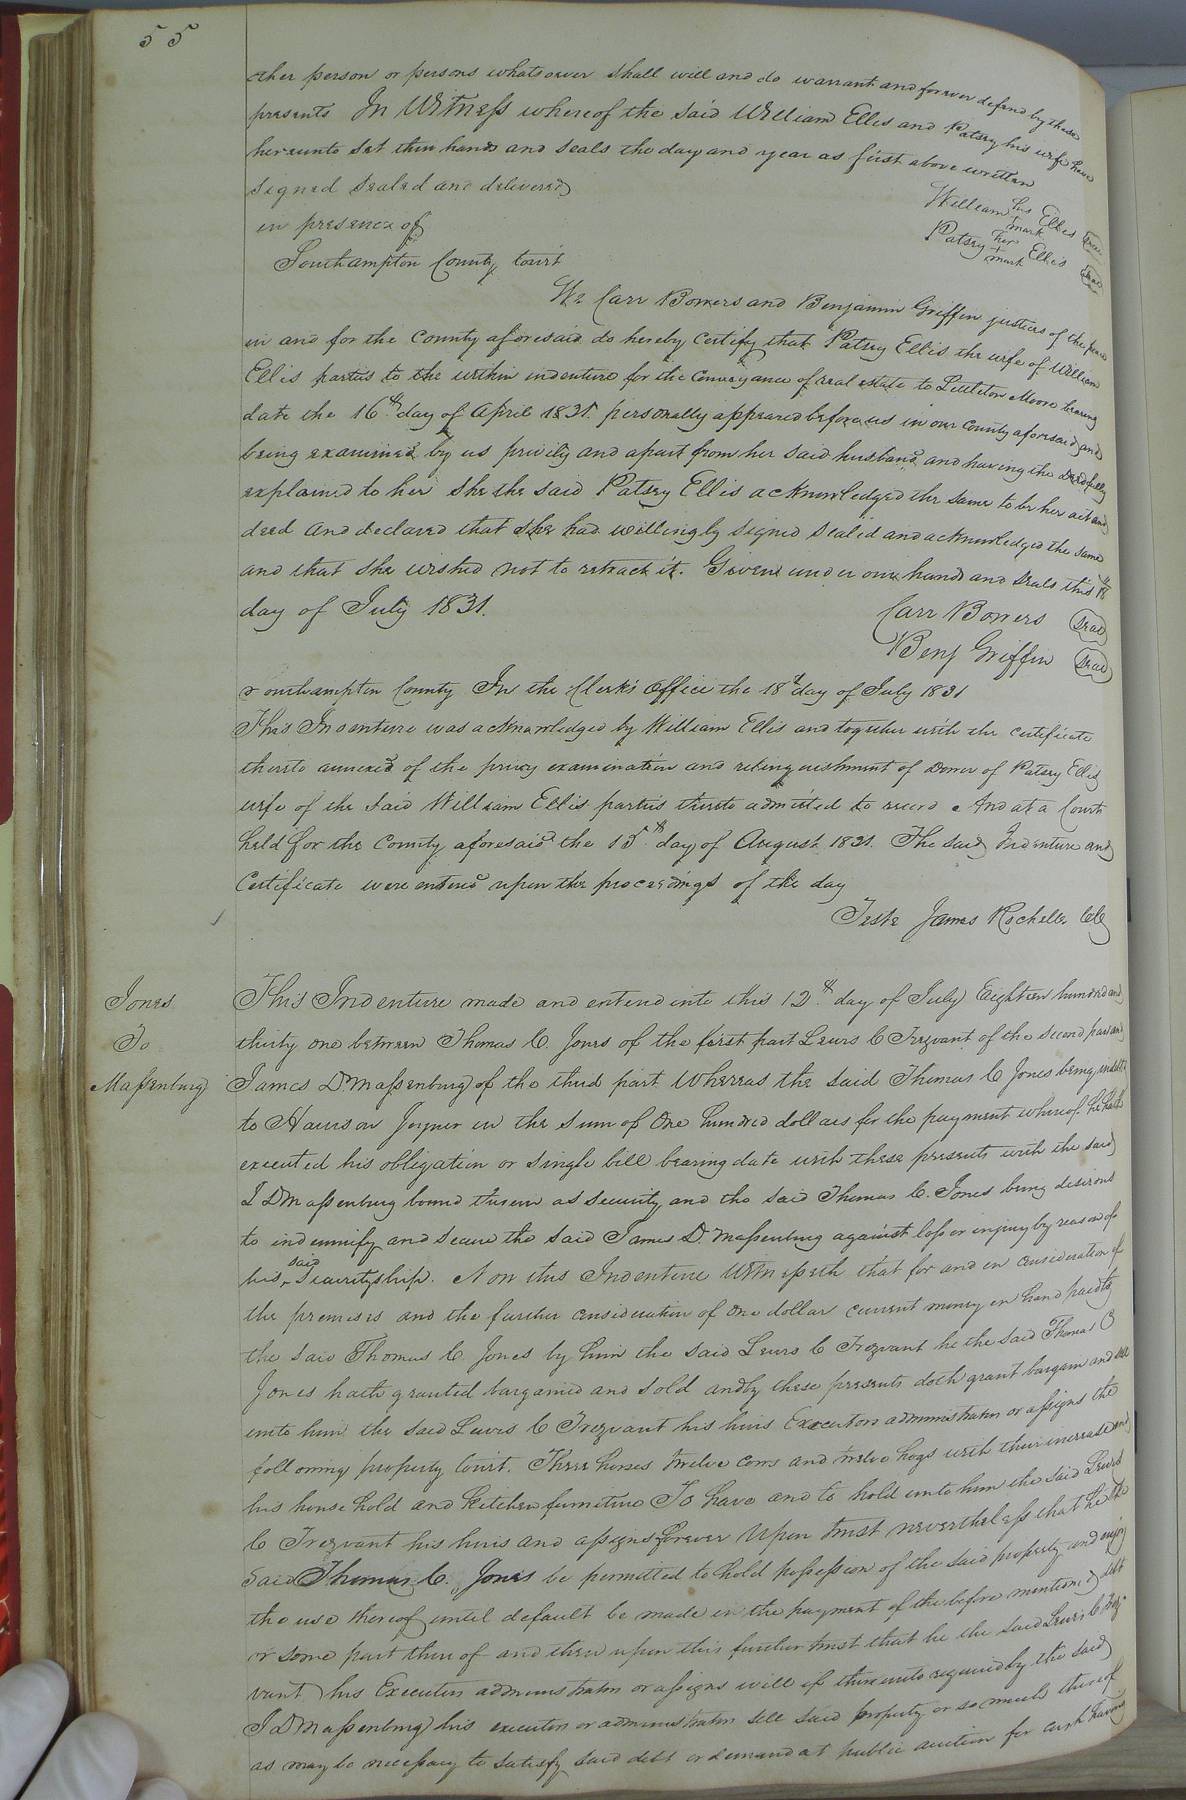 55
other person or persons whatsoever shall will and do warrant and forever defend by these
presents In Witness whereof the said William Ellis and Patsey his wife have
hereunto set their hands and seals the day and year as first above written
Signed Sealed and delivered
in presence of
William his mark Ellis Seal
Patsey her mark Ellis Seal
Southampton County towit
We Carr Bowers and Benjamin Griffin justices of the peace
in and for the county aforesaid do hereby certify that Patsey Ellis the wife of William
Ellis parties to the within indenture for the conveyance of real estate to Littleton Moore bearing
date the 16th day of April 1831. personally appeared before us in our county aforesaid and
being examined by us privily and apart from her said husband and having the deed fully
explained to her she the said Patsey Ellis acknowledged the same to be her act and
deed and declared that she had willingly signed sealed and acknowledged the same
and that she wished not to retract it. Given under our hands and seals this 18th
day of July 1831.
Carr Bowers Seal
Benj Griffin Seal
Southampton County In the Clerk's Office the 18th day of July 1831
This Indenture was acknowledged by William Ellis and together with the certificate
thereto annexed of the privy examination and relinquishment of Dower of Patsey Ellis
wife of the said William Ellis parties thereto admitted to record. And at a Court
held for the county aforesaid the 15th day of August 1831. The said Indenture and
Certificate were entered upon the proceedings of the day
Teste James Rochelle Clk
Jones
To
Maſsenburg
This Indenture made and entered into this 12th day of July Eighteen hundred and
thirty one between Thomas C. Jones of the first part Lewis C Trezvant of the second part and
James D Maſsenburg of the third part Whereas the said Thomas C Jones being indebted
to Harrison Joyner in the sum of One hundred dollars for the payment whereof he hath
executed his obligation or single bill bearing date with these presents with the said
J D Maſsenburg bound therein as security and the said Thomas C. Jones being desirous
to indemnify and secure the said James D. Maſsenburg against loſs or injury by reason of
his said Securityship. Now this Indenture Witneſseth that for and in consideration of
the premises and the further consideration of one dollar current money in hand paid to
the said Thomas C. Jones by him the said Lewis C Trezvant he the said Thomas C
Jones hath granted bargained and sold and by these presents doth grant bargain and sell
unto him the said Lewis C Trezvant his heirs Executors administrators or aſsigns the
following property towit. Three horses twelve cows and twelve hogs with their increase and
his house hold and kitchen furniture To have and to hold unto him the said Lewis
C Trezvant his heirs and aſsigns forever Upon trust nevertheleſs that he the
said Thomas C. Jones be permitted to hold poſseſsion of the said property and enjoy
the use thereof until default be made in the payment of the before mentioned debt
or some part thereof and then upon this further trust that he the said Lewis C Trez-
vant his Executors administrators or aſsigns will if thereunto required by the said
J D Maſsenburg his executors or administrators sell said property or so much thereof
as may be neceſsary to satisfy said debt or demand at public auction for cash having